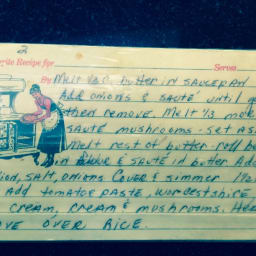 2
rite Recipe for
Serves
By Melt 1/3 C. butter in saucepan
Add onions & sauté until go
then remove. Melt 1/3 more
sauté mushrooms - set asi
Melt rest of butter - roll be
in flour & sauté in butter Add
ion, salt, onions Cover & simmer 1 1/2
Add tomatoe paste, worcestshire,
cream, cream & mushrooms. He
ve over rice.